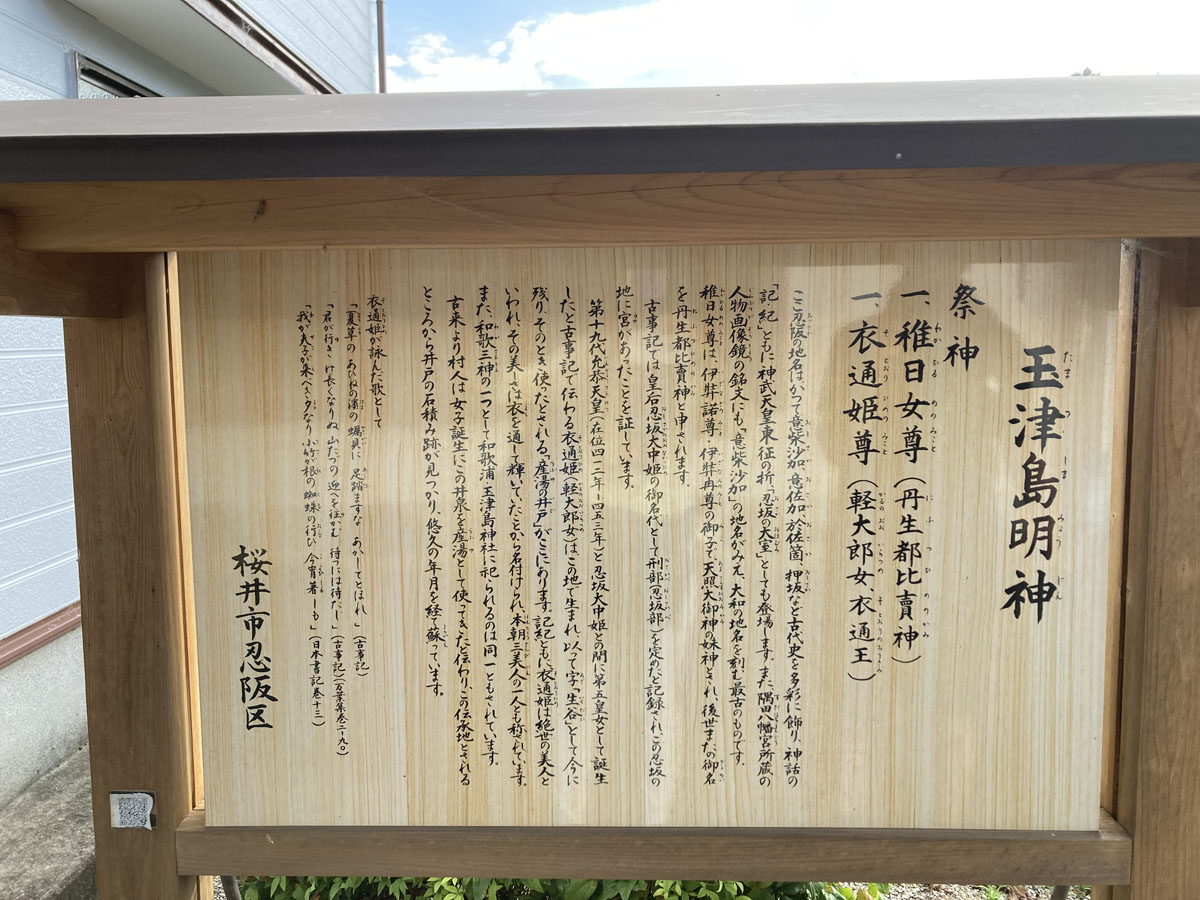 玉津島明神
祭神
一、稚日女尊(丹生都比賣神)
一、衣通姫尊(軽大郎女、衣通王)
ここ忍阪の地名は、かつて意柴沙加、意佐加、於佐箇、押坂など古代史を多彩に飾り、神話の
「記紀」ともに神武天皇東征の折、「忍坂の大室」としても登場します。また隅田八幡宮所蔵の
人物画像鏡の銘文にも「意柴沙加」の地名がみえ、大和の地名を刻む最古のものです。
稚日女尊は、伊弉諾尊・伊弉冉尊の御子で、天照大御神の妹神とされ、後世またの御名
を丹生都比賣神と申されます。
古事記では皇后忍坂大中姫の御名代として刑部(忍坂部)を定めたと記録され、この忍坂の
地に宮があったことを証しています。
第十九代允恭天皇(在位四一二年~四五三年)と忍坂大中姫との間に第五皇女として誕生
したと古事記で伝わる衣通姫(軽大郎女)はこの地で生まれ、以って字「生谷」として今に
残り、そのとき使ったとされる「産湯の井戸」がここにあります。記紀ともに衣通姫は絶世の美人と
いわれ、その美しさは衣を通して輝いていたことから名付けられ、本朝三美人の一人とも称されています。
また、和歌三神の一つとして和歌浦、玉津島神社に祀られるのは同一ともされています。
古来より村人は女子誕生にこの井泉を産湯として使ってきたと伝わり、この伝承地とされる
ところから井戸の石積み跡が見つかり、悠久の年月を経て蘇っています。
衣通姫が詠んだ歌として
「夏草の あひねの濱の 蠣貝に 足踏ますな あかしてとほれ」(古事記)
「君が行き け長くなりぬ 山たづの 迎へを往かむ 待つには待たじ」(古事記)(万葉集巻二-九〇)
「我が夫子が来べき夕なり 小竹が根の 蜘蛛の行ひ 今宵著しも」(日本書記巻十三)
桜井市忍阪区